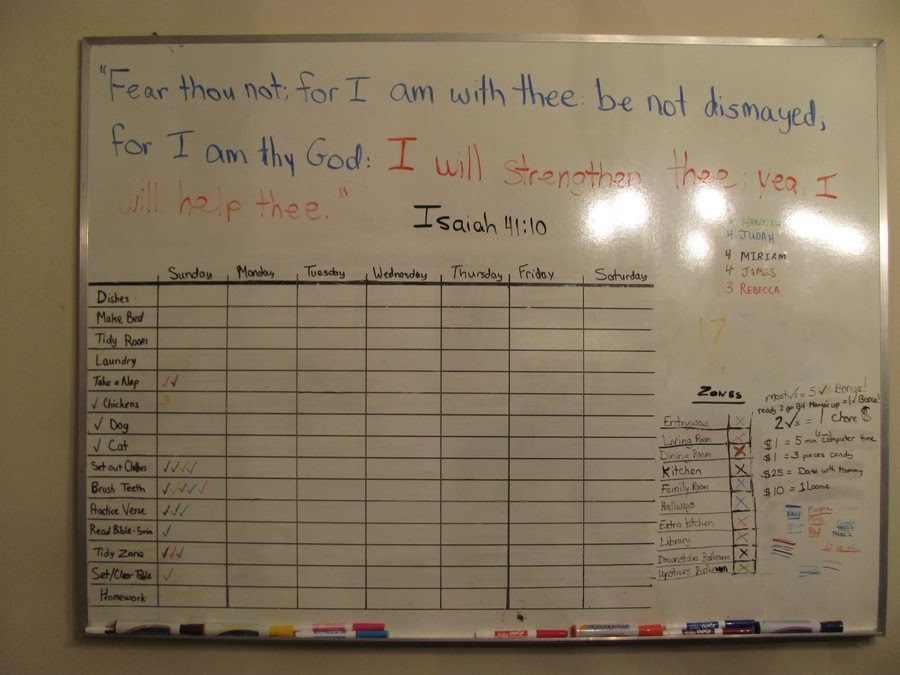 "Fear thou not; for I am with thee: be not dismayed;
for I am thy God: I will strengthen thee; yea, I
will help thee."
Isaiah 41:10
HANNAH
4 JUDAH
4 MIRIAM
4 JAMES
3 REBECCA
17
Sunday Monday Tuesday Wednesday Thursday Friday Saturday
Dishes
Make Bed
Tidy Room
Laundry
Take a Nap ✓✓
✓ Chickens 3
✓ Dog
✓ Cat
Set out Clothes ✓✓✓✓
Brush Teeth ✓✓✓✓✓
Practice Verse ✓✓✓
Read Bible-5min ✓
Tidy Zone ✓✓✓
Set/Clear Table ✓
Homework
ZONES
Entryway X
Living Room X
Dining Room X
Kitchen X
Family Room X
Hallways X
Extra kitchen X
Library X
Downstairs Bathroom X
Upstairs Bathroom X
most ✓s = 5✓ Bonus!
ready 2 go B4 up = 1✓ Bonus!
2✓s = 1 chore $
$1 = 5 min computer time
$1 = 3 pieces candy
$25 = Date with Mommy
$10 = 1 Loonie
Navy Purple
Pink
Red
Black
EXPO
EXPO
EXPO
EXPO